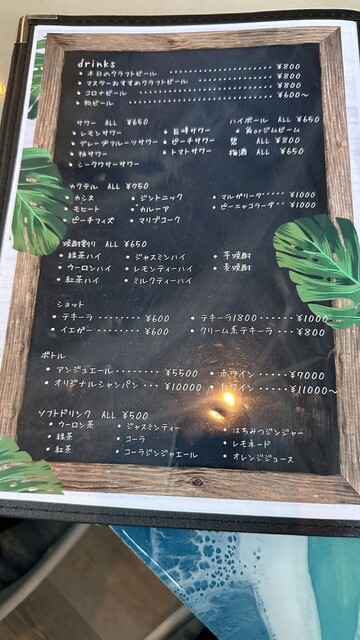 drinks
• 本日のクラフトビール ¥800
• マスターおすすめクラフトビール ¥800
• コロナビール ¥800
• 瓶ビール ¥600〜
サワー ALL ¥650 ハイボール ALL ¥650
• レモンサワー • 巨峰サワー • 角orジムビーム
• グレープフルーツサワー • ピーチサワー ALL ¥800
• 柚サワー • トマトサワー 梅酒 ALL ¥650
• シークワサーサワー
カクテル ALL ¥750
• カシス • ジントニック • マルガリータ ¥1000
• モヒート • カルーア • ピーニャコラーダ ¥1000
• ピーチフィズ • マリブコーク
焼酎割り ALL ¥650
• 緑茶ハイ • ジャスミンハイ • 芋焼酎
• ウーロンハイ • レモンティーハイ • 麦焼酎
• 紅茶ハイ • ミルクティーハイ
ショット
• テキーラ ¥600 • テキーラ1800 ¥1000
• イエガー ¥600 • クリーム系テキーラ ¥800
ボトル
• アンジュエール ¥5500 • 赤ワイン ¥7000
• オリジナルシャンパン ¥10000 • 白ワイン ¥11000〜
ソフトドリンク ALL ¥500
• ウーロン茶 • ジャスミンティー • はちみつジンジャー
• 緑茶 • コーラ • レモネード
• 紅茶 • コーラジンジャエール • オレンジジュース